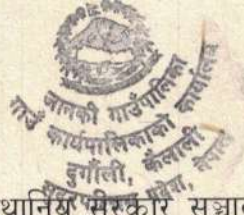 जानकी गाउँपालिका
गाउँ कार्यपालिकाको कार्यालय
दुर्गौली, कैलाली
प्रदेश, नेपाल
सरकार सञ्चा